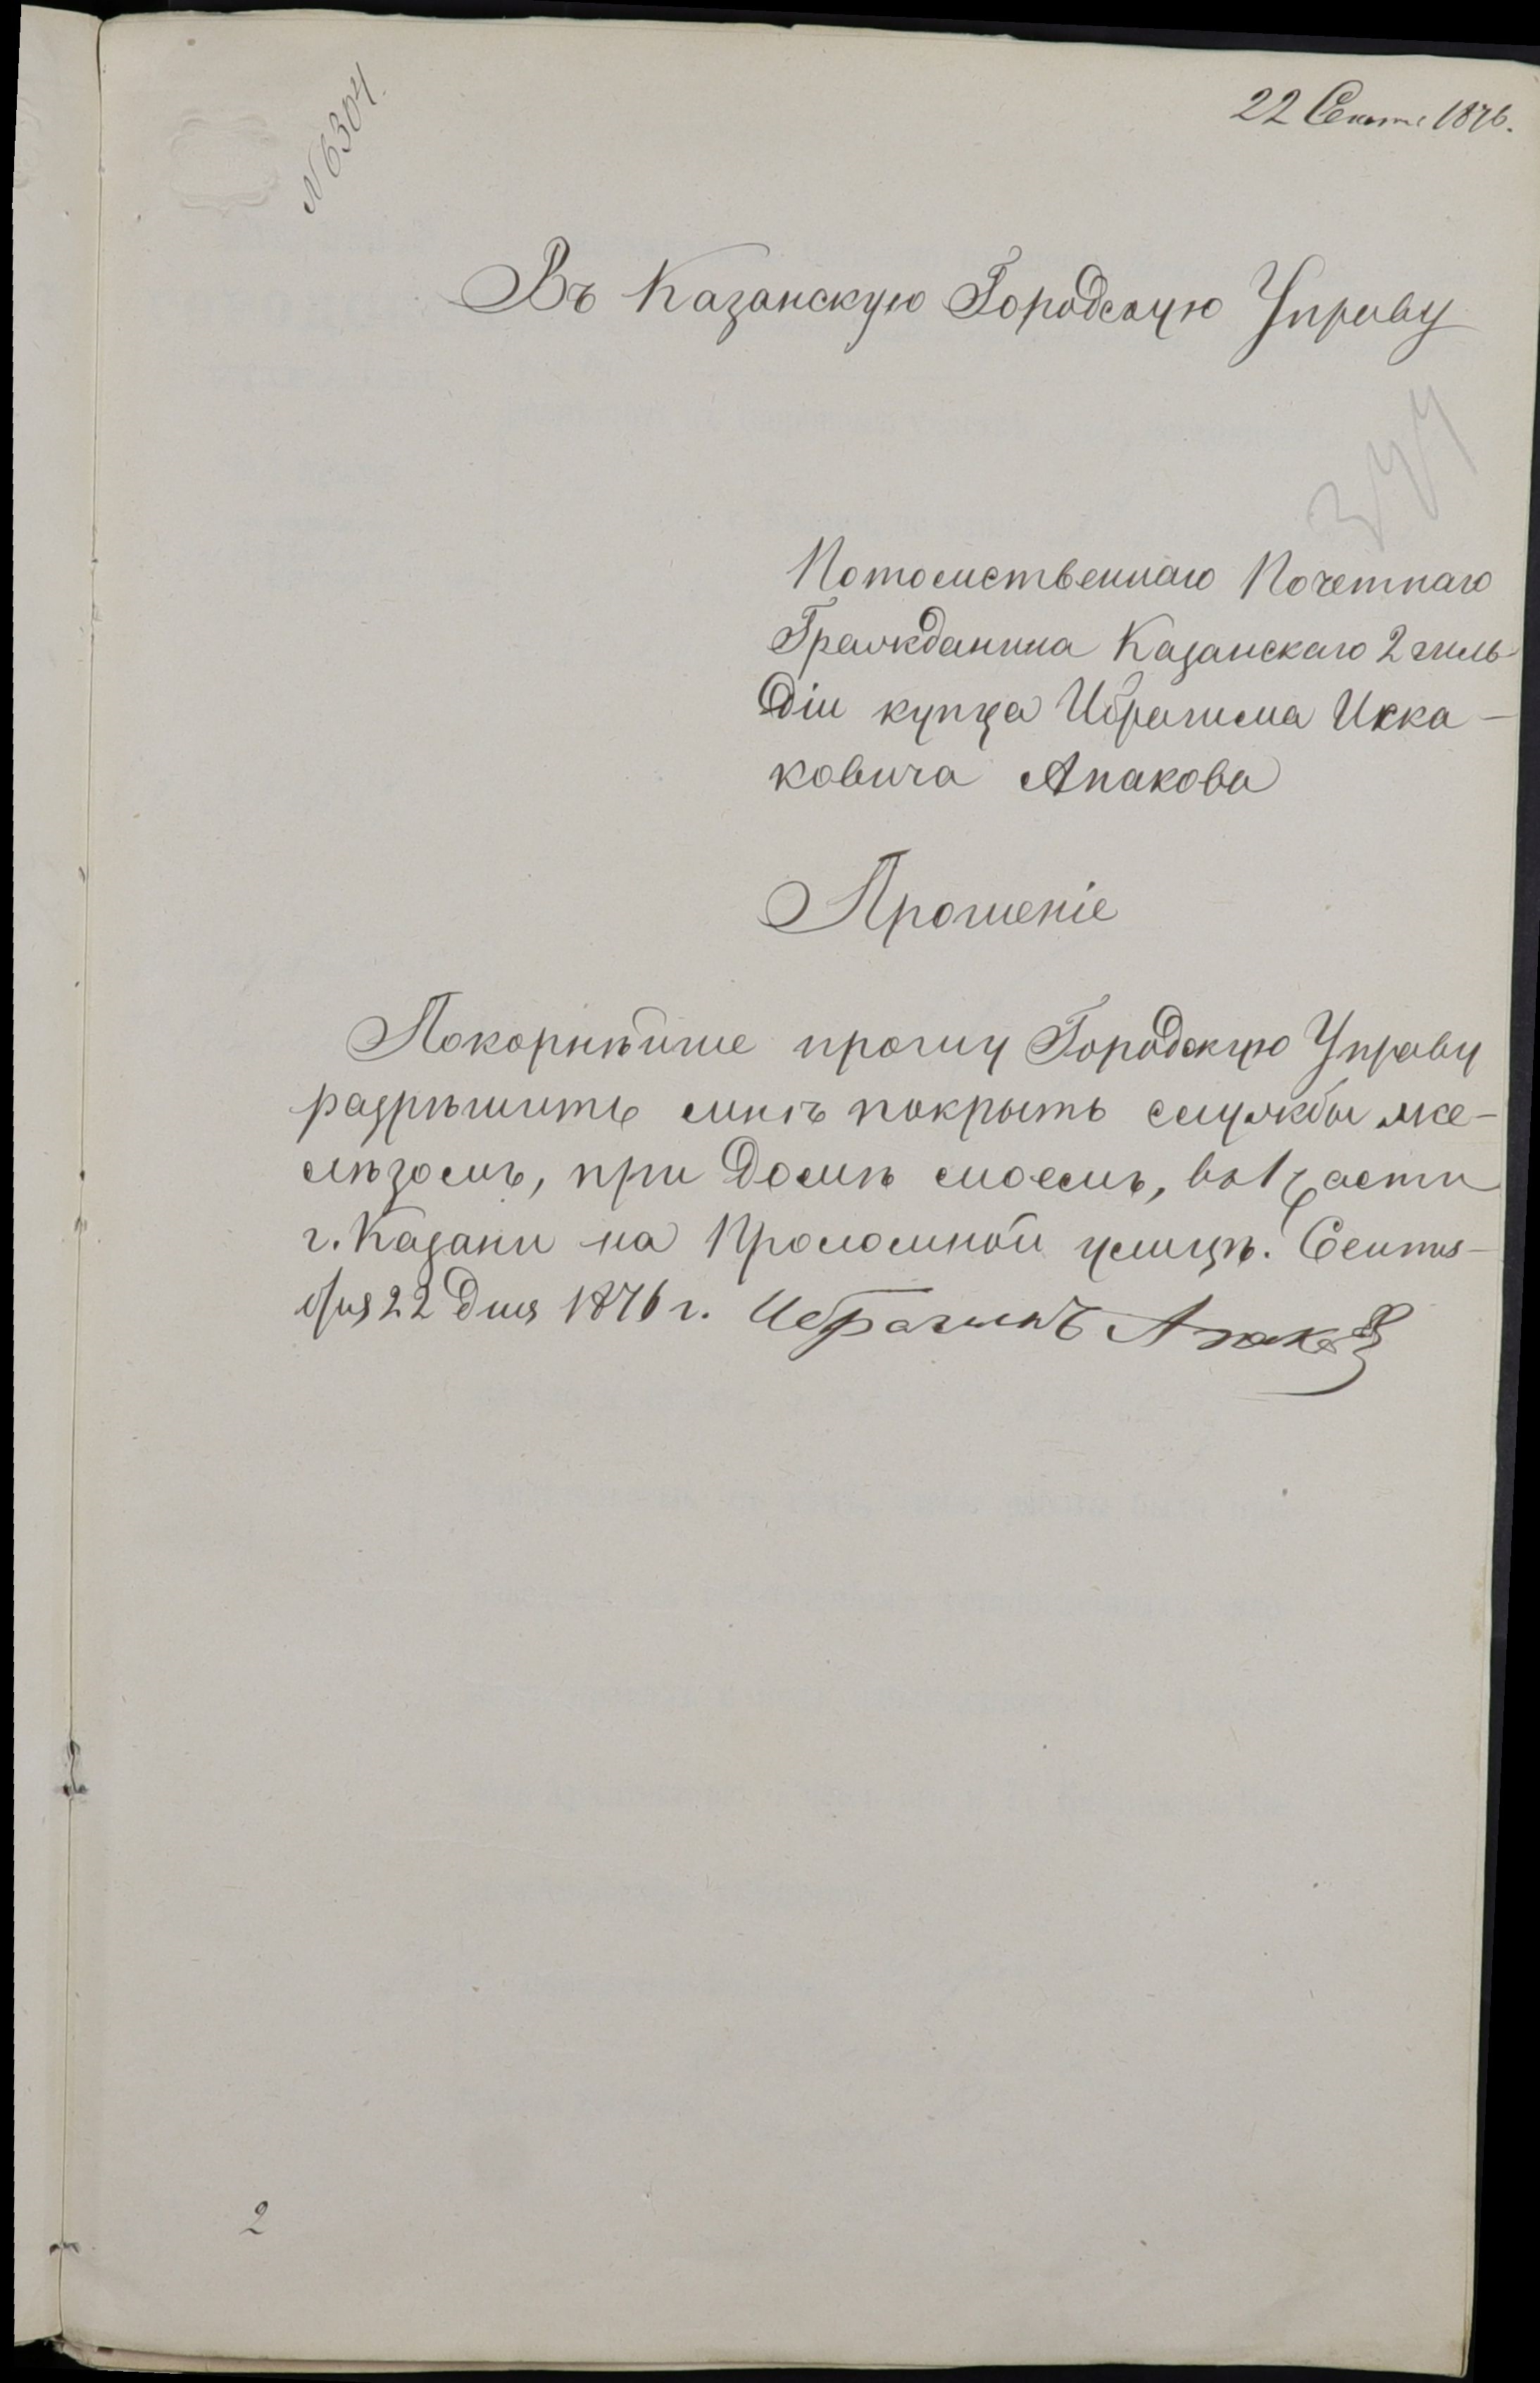 № 6304.
22 Сент. 1876.
Въ Казанскую Городскую Управу
344
Потомственнаго Почетнаго
Гражданина Казанскаго 2 гиль-
діи купца Ибрагима Искa-
ковича Апакова
Прошеніе
Покорнѣйше прошу Городскую Управу
разрѣшить мнѣ покрыть службы же-
лѣзомъ, при домѣ моемъ, въ 1 части
г. Казани на Проломной улицѣ. Сентя-
бря 22 дня 1876 г. Ибрагимъ Апаковъ
2